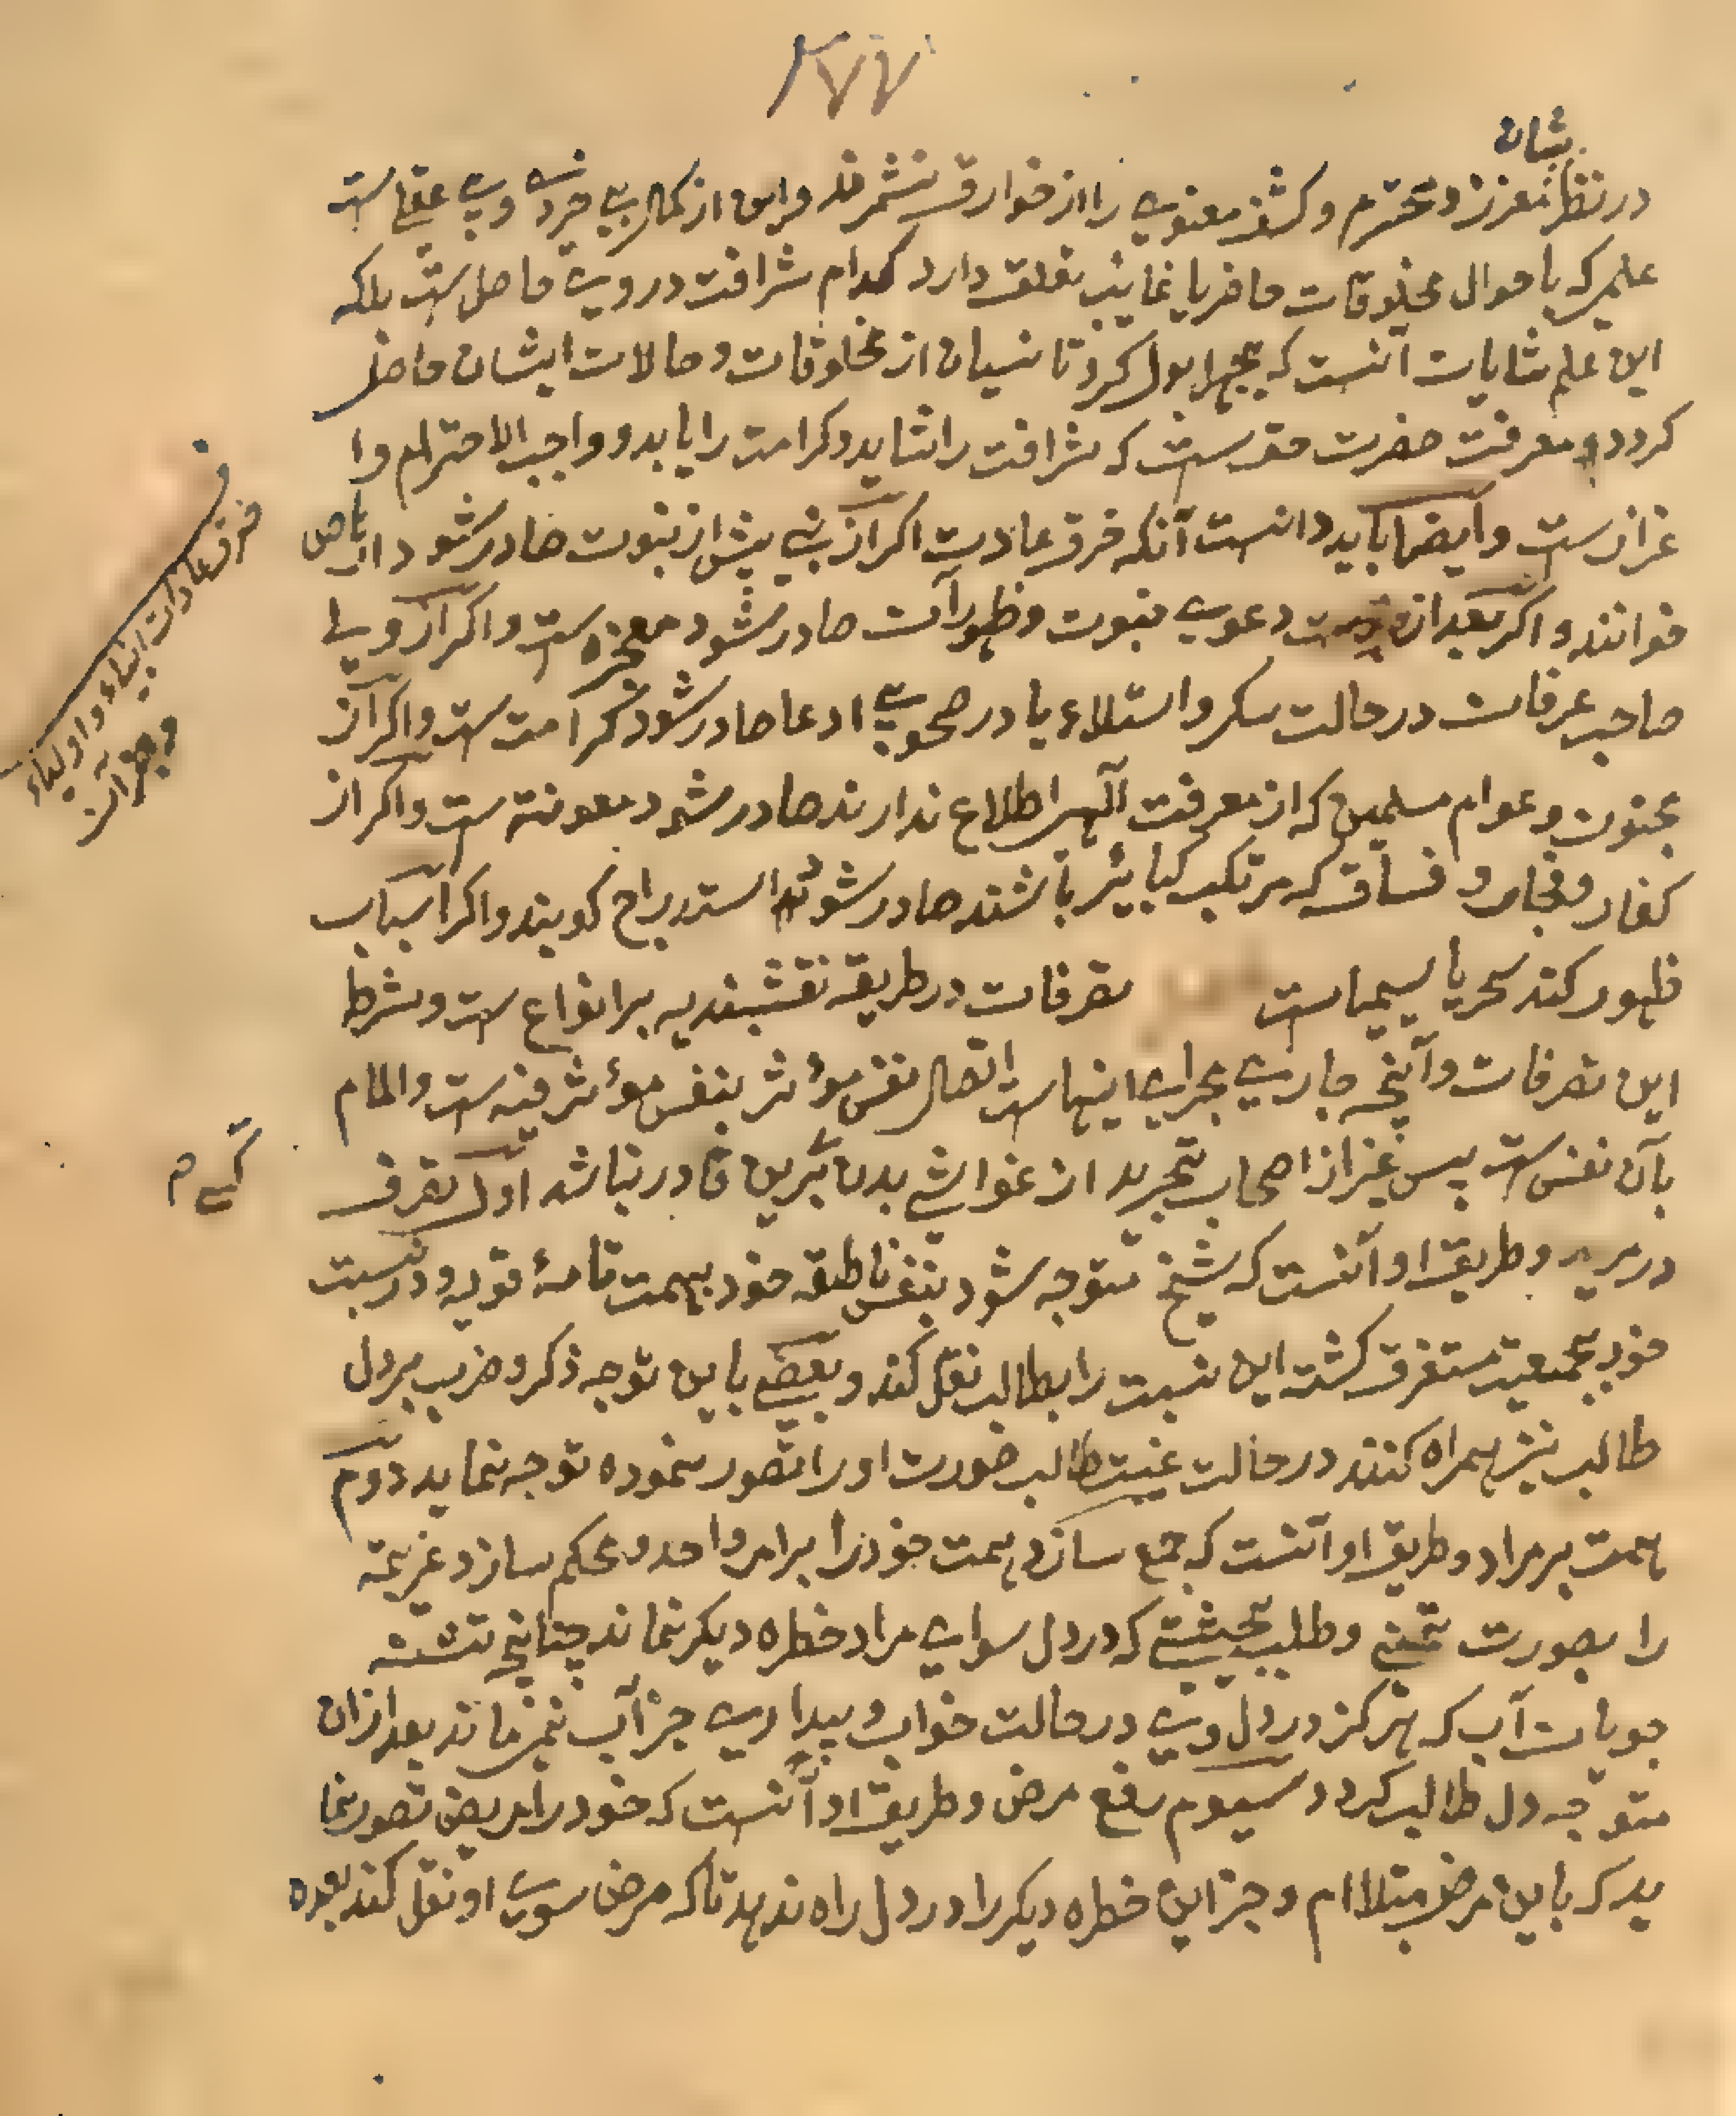 ۲۷۷
در نظر شان معزز و محترم و کشف معنوی را از خوارق نشمرند و این از کمال بی خردی و بی عقلی است
علمی که باحوال مخلوقات حاضر یا غایب تعلق دارد کدام شرافت در وی حاصل است بلکه
این علم شایان آنست که بجهل مبدل گردد تا نسیان از مخلوقات و حالات ایشان حاصل
گردد و معرفت حضرت حق ست که شرافت را شاید و کرامت را باید و واجب الاحترام وا
عزاز ست و ایضا باید دانست آنکه خرق عادت اگر از نبی پیش از نبوت صادر شود ارهاص
خوانند و اگر بعد از دعوی نبوت و ظهور آن صادر شود معجزه ست و اگر از ولی
صاحب عرفان در حالت سکر و استلاء یا در صحو بی ادعا صادر شود کرامت ست و اگر از
مجنون و عوام مسلمین که از معرفت الهی اطلاع ندارند صادر شود معونة ست و اگر از
کفار و فجار و فساق که مرتکب کبایئر باشند صادر شود استدراج گویند و اگر اسباب
ظهور کند سحر یا سیمیا ست تصرفات در طریقه نقشبندیه بر انواع ست و شرط
این تصرفات و آنچه جاری مجرای اینهاست اتصال نفس مؤثر بنفس مؤثر فیه ست و المام
بآن نفس ست پس غیر از اصحاب تجرید از غواشی بدن برین قادر نباشد اول تصرف
در مرید و طریق او آنست که شیخ متوجه شود بنفس ناطقه خود بهمت تامهٔ قویه و در نسبت
خود بجمعیت مستغرق گشته این نسبت را بطالب نقل کند و بعضی باین توجه ذکر و ضرب بر دل
طالب نیز همراه کنند در حالت غیبت طالب صورت او را تصور نموده توجه نماید دوم
همت بر مراد و طریق او آنست که جمع سازد همت خود را بر امر واحد و محکم سازد عزیمة
را بصورت تمنی و طلب بحیثیتی که در دل سوای مراد خطره دیگر نماند چنانچه تشنه
جویان آب که هرگز در دل وی در حالت خواب و بیداری جز آب نمی ماند بعد ازان
متوجه دل طالب گردد سیوم رفع مرض و طریق او آنست که خود را مریض تصور نما
ید که باین مرض مبتلا ام و جز این خطره دیگر را در دل راه ندهد تا که مرض سوی او نقل کند بعده
خرق عادات انبیاء و اولیاء
و جز آن
کسی م